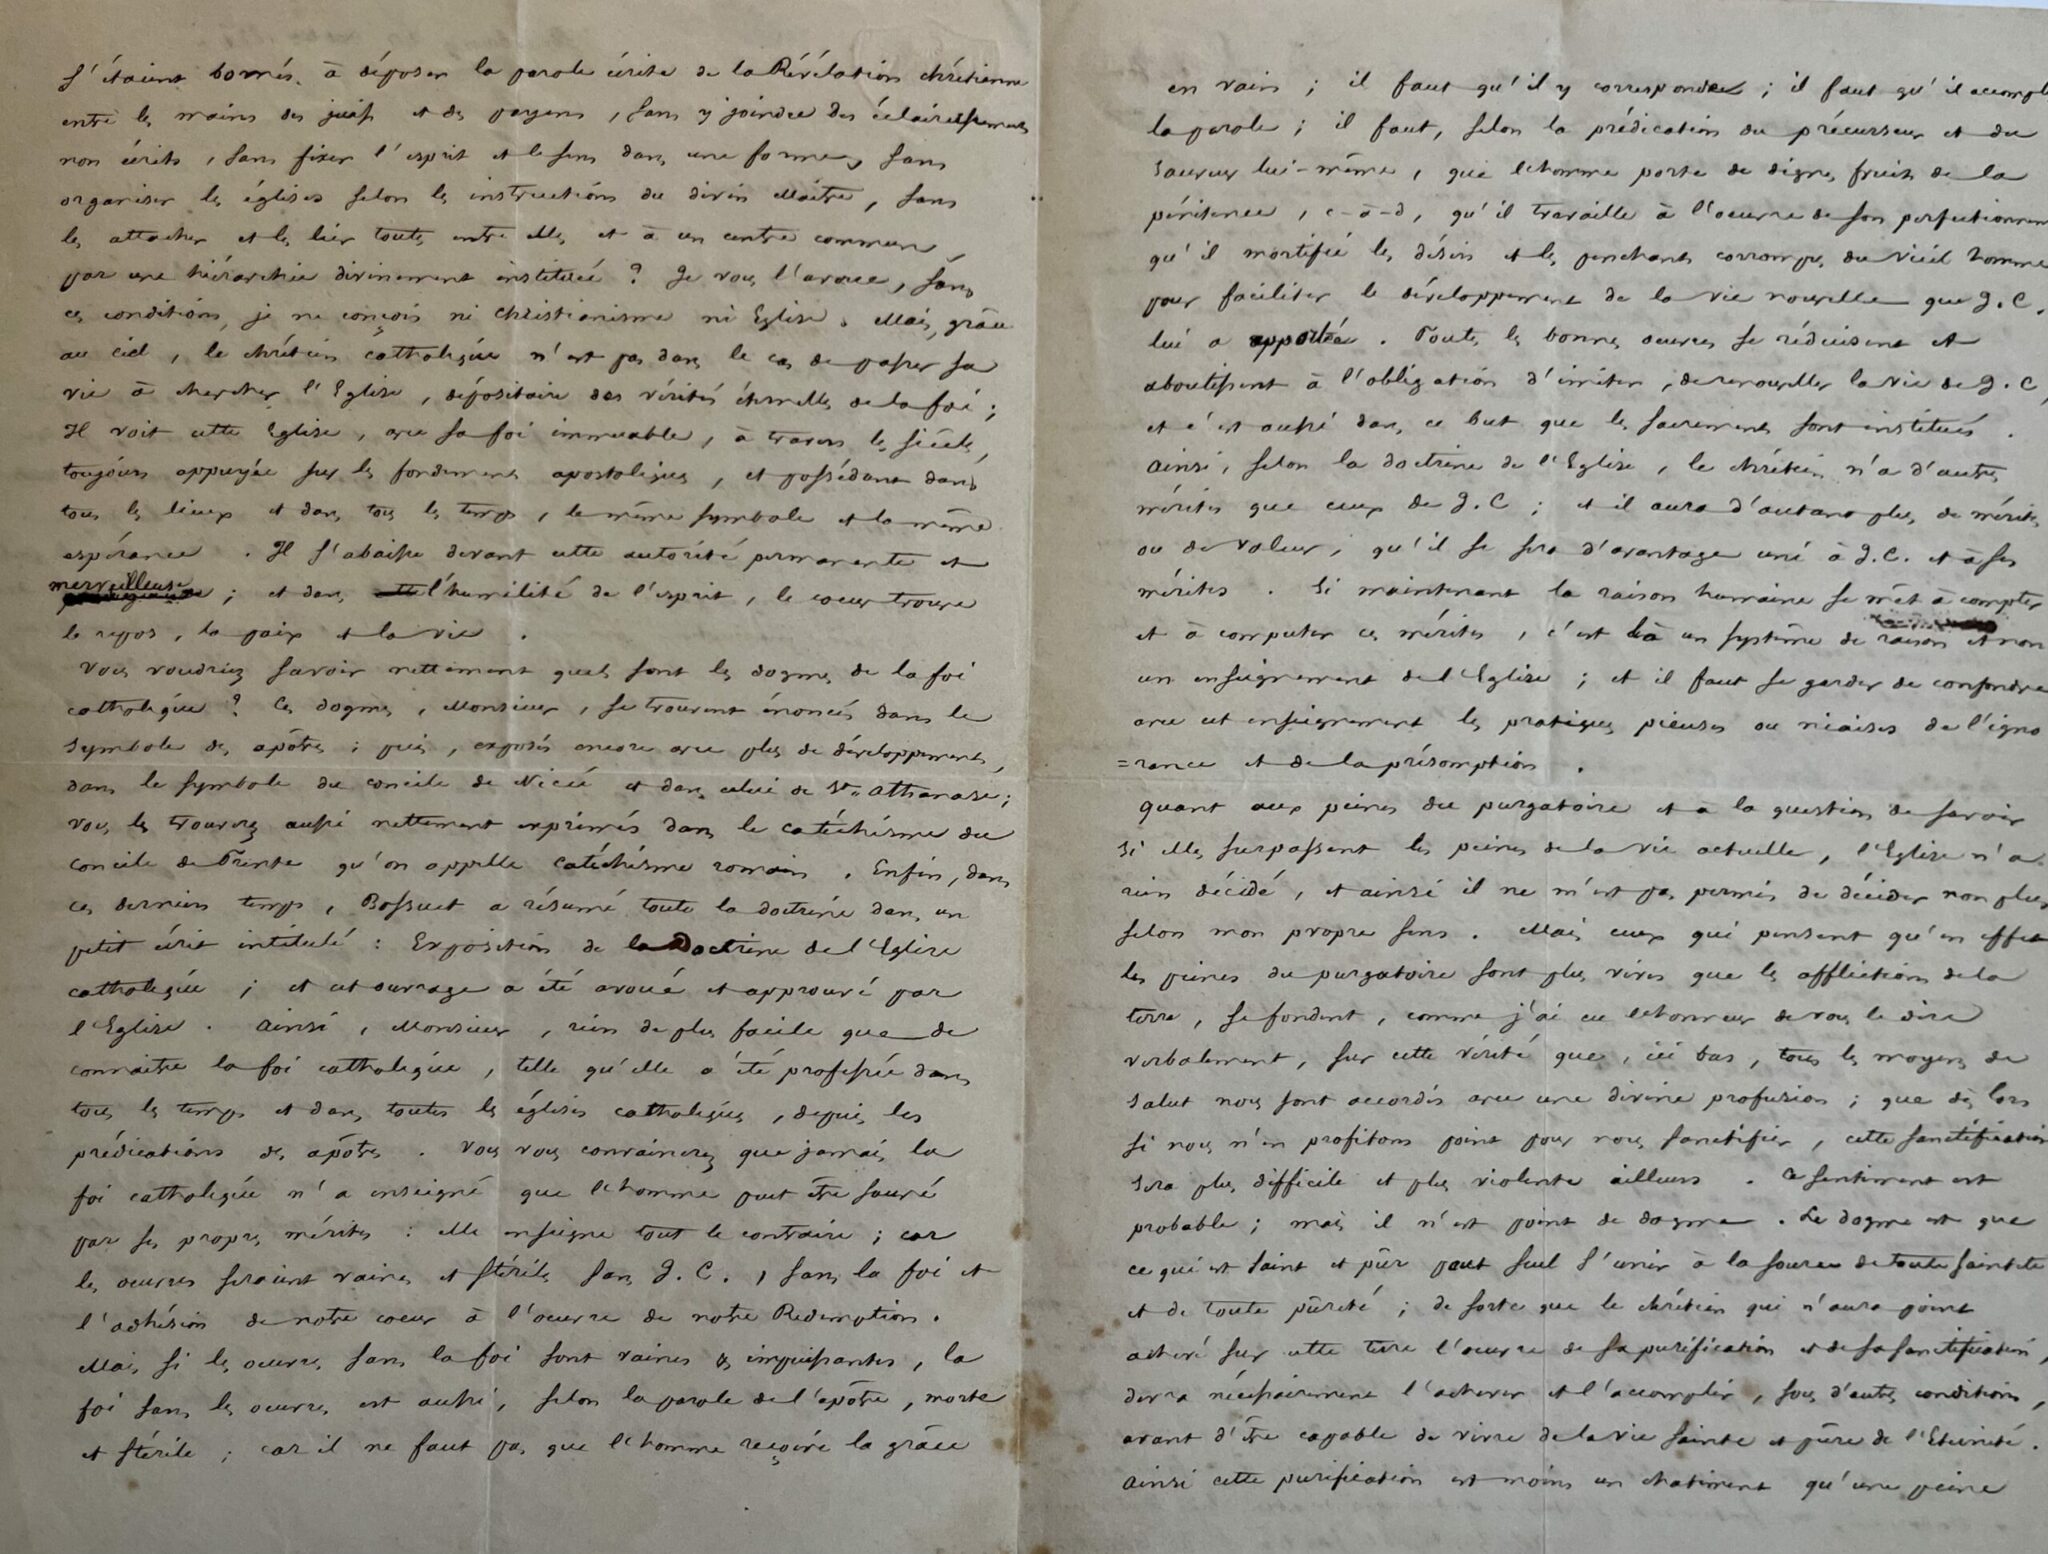 s'étaient bornés à déposer la parole écrite de la Révélation chrétienne
entre les mains des juifs et des payens, sans y joindre des éclaircissements
non écrits, sans fixer l'esprit et le sens dans une forme, sans
organiser les églises selon les instructions du divin Maître, sans
les attacher et les lier toutes entre elles et à un centre commun
par une hiérarchie divinement instituée ? Je vous l'avoue, sans
ces conditions, je ne conçois ni christianisme ni Eglise. Mais, grâce
au ciel, le chrétien catholique n'est pas dans le cas de passer sa
vie à chercher l'Eglise, dépositaire des vérités éternelles de la foi ;
Il voit cette Eglise, avec sa foi immuable, à travers les siècles,
toujours appuyée sur les fondements apostoliques, et possédant dans
tous les lieux et dans tous les temps, le même symbole et la même
espérance. Il s'abaisse devant cette autorité permanente et
merveilleuse ; et dans l'humilité de l'esprit, le coeur trouve
le repos, la paix et la vie.
Vous voudriez savoir nettement quels sont les dogmes de la foi
catholique ? Ces dogmes, Monsieur, se trouvent énoncés dans le
Symbole des apôtres ; puis, exposés encore avec plus de développements,
dans le symbole du concile de Nicée et dans celui de St. Athanase ;
vous les trouverez aussi nettement exprimés dans le catéchisme du
concile de Trente qu'on appelle catéchisme romain. Enfin, dans
ces derniers temps, Bossuet a résumé toute la doctrine dans un
petit écrit intitulé : Exposition de la Doctrine de l'Eglise
catholique ; et cet ouvrage a été avoué et approuvé par
l'Eglise. Ainsi, Monsieur, rien de plus facile que de
connaitre la foi catholique, telle qu'elle a été professée dans
tous les temps et dans toutes les églises catholiques, depuis les
prédications des apôtres. Vous vous convaincrez que jamais la
foi catholique n'a enseigné que l'homme peut être sauvé
par ses propres mérites : elle enseigne tout le contraire ; car
les oeuvres seraient vaines et stériles sans J. C., sans la foi et
l'adhésion de notre coeur à l'oeuvre de notre Redemption.
Mais si les oeuvres sans la foi sont vaines & impuissantes, la
foi sans les oeuvres est aussi, selon la parole de l'apôtre, morte
et stérile ; car il ne faut pas que l'homme reçoive la grâce
en vain ; il faut qu'il y corresponde ; il faut qu'il accompl
la parole ; il faut, selon la prédication du précurseur et du
Sauveur lui-même, que l'homme porte de dignes fruits de la
pénitence, c-à-d, qu'il travaille à l'oeuvre de son perfectionnem
qu'il mortifie les désirs et les penchants corrompus du vieil homme
pour faciliter le développement de la vie nouvelle que J. C.
lui a apportée. Toutes les bonnes oeuvres se réduisent et
aboutissent à l'obligation d'imiter, de renouveller la vie de J. C,
et c'est aussi dans ce but que les sacrements sont institués.
Ainsi, selon la doctrine de l'Eglise, le chrétien n'a d'autres
mérites que ceux de J. C ; et il aura d'autant plus de mérites,
ou de valeur, qu'il se sera d'avantage uni à J. C. et à ses
mérites. Si maintenant la raison humaine se met à compter
et à computer ces mérites, c'est là un système de raison et non
un enseignement de l'Eglise ; et il faut se garder de confondre
avec cet enseignement les pratiques pieuses ou niaises de l'igno
=rance et de la présomption.
Quant aux peines du purgatoire et à la question de savoir
si elles surpassent les peines de la vie actuelle, l'Eglise n'a
rien décidé, et ainsi il ne m'est pas permis de décider non plus
selon mon propre sens. Mais ceux qui pensent qu'en effet
les peines du purgatoire sont plus vives que les afflictions de la
terre, se fondent, comme j'ai eu l'honneur de vous le dire
verbalement, sur cette vérité que, ici bas, tous les moyens de
Salut nous sont accordés avec une divine profusion ; que dès lors
si nous n'en profitons point pour nous sanctifier, cette sanctification
sera plus difficile et plus violente ailleurs. Ce sentiment est
probable ; mais il n'est point de dogme. Le dogme est que
ce qui est saint et pûr peut seul s'unir à la source de toute sainteté
et de toute pûreté ; de sorte que le chrétien qui n'aura point
achevé sur cette terre l'oeuvre de sa purification et de sa sanctification,
devra nécessairement l'achever et l'accomplir, sous d'autres conditions,
avant d'être capable de vivre de la vie sainte et pûre de l'Eternité.
Ainsi cette purification est moins un chatiment qu'une peine